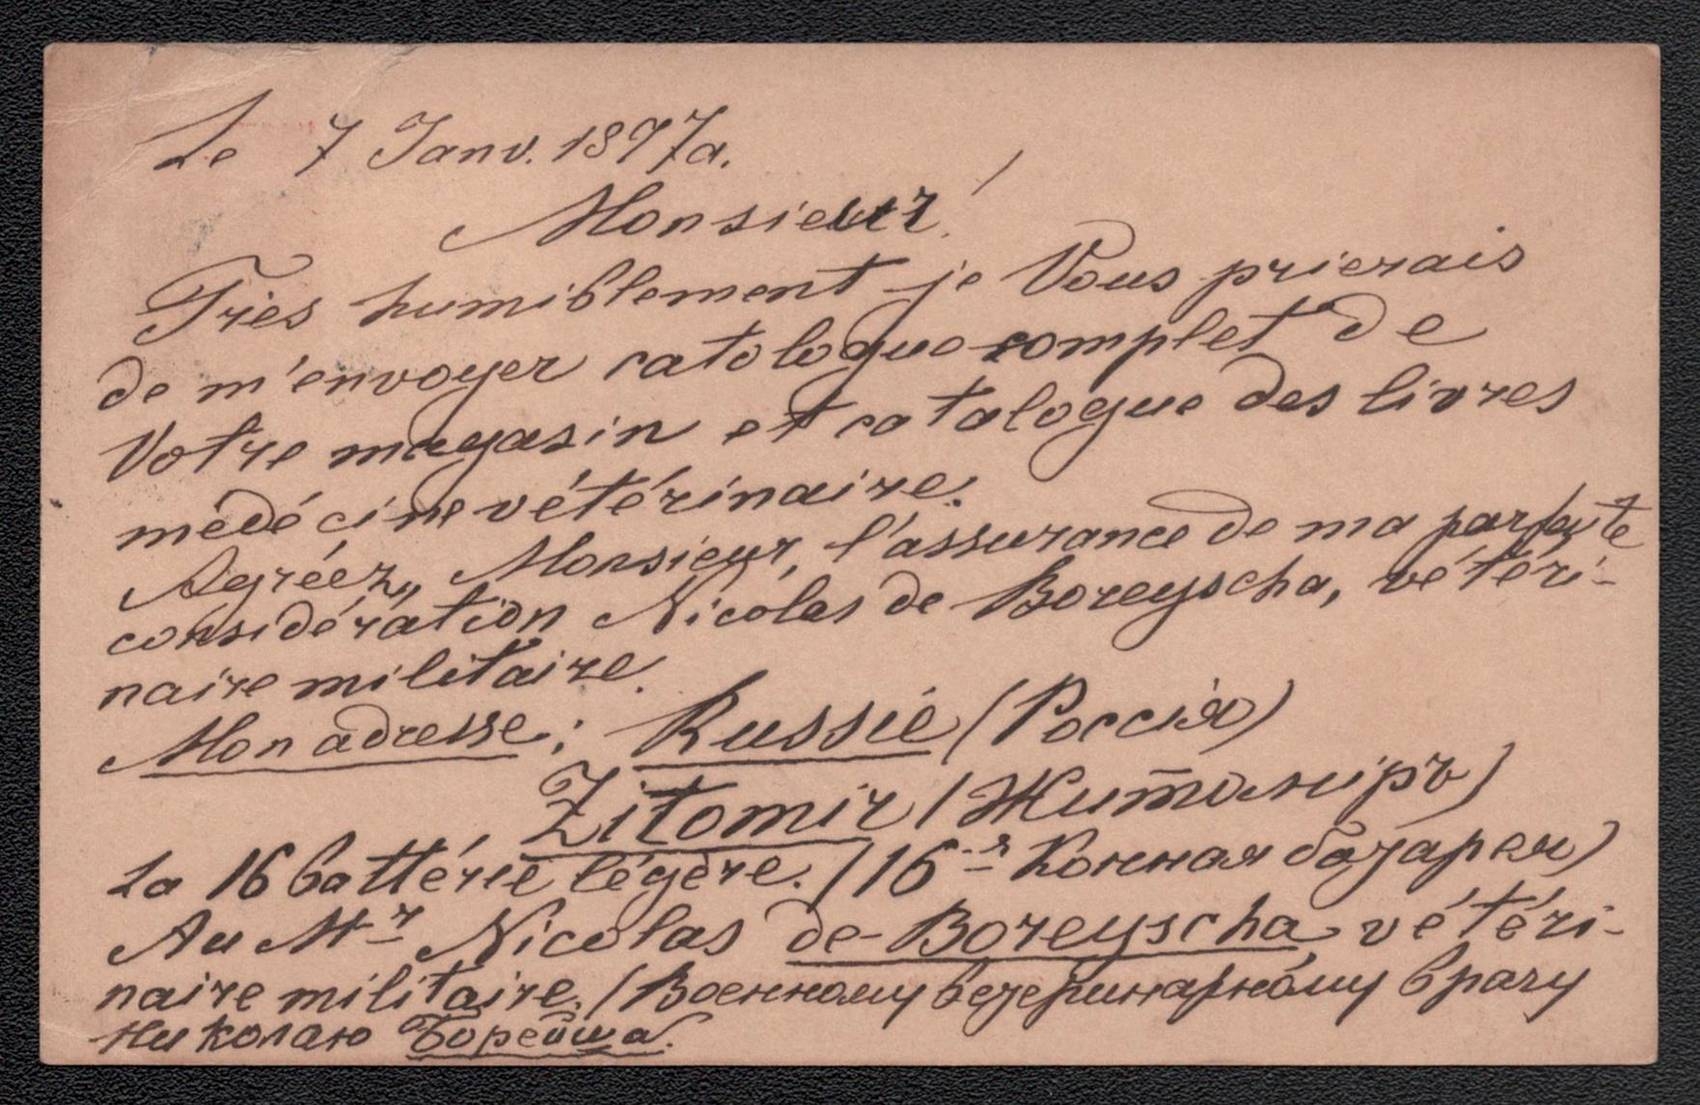 Le 7 Janv. 1897 a.
Monsieur!
Très humiblement je Vous prierais
de m'envoyer catologue complet de
Votre magasin et catalogue des livres
médécine vétérinaire.
Agréez, Monsieur, l'assurance de ma parfaite
considération Nicolas de Boreyscha, vétéri-
naire militaire.
Mon adresse: Russie (Россія)
Zitomir (Житомиръ)
La 16 battérie légère. (16-я Конная батарея)
Au M-r Nicolas de-Boreyscha vétéri-
naire militaire. (Военному ветеринарному врачу
Николаю Борейша.